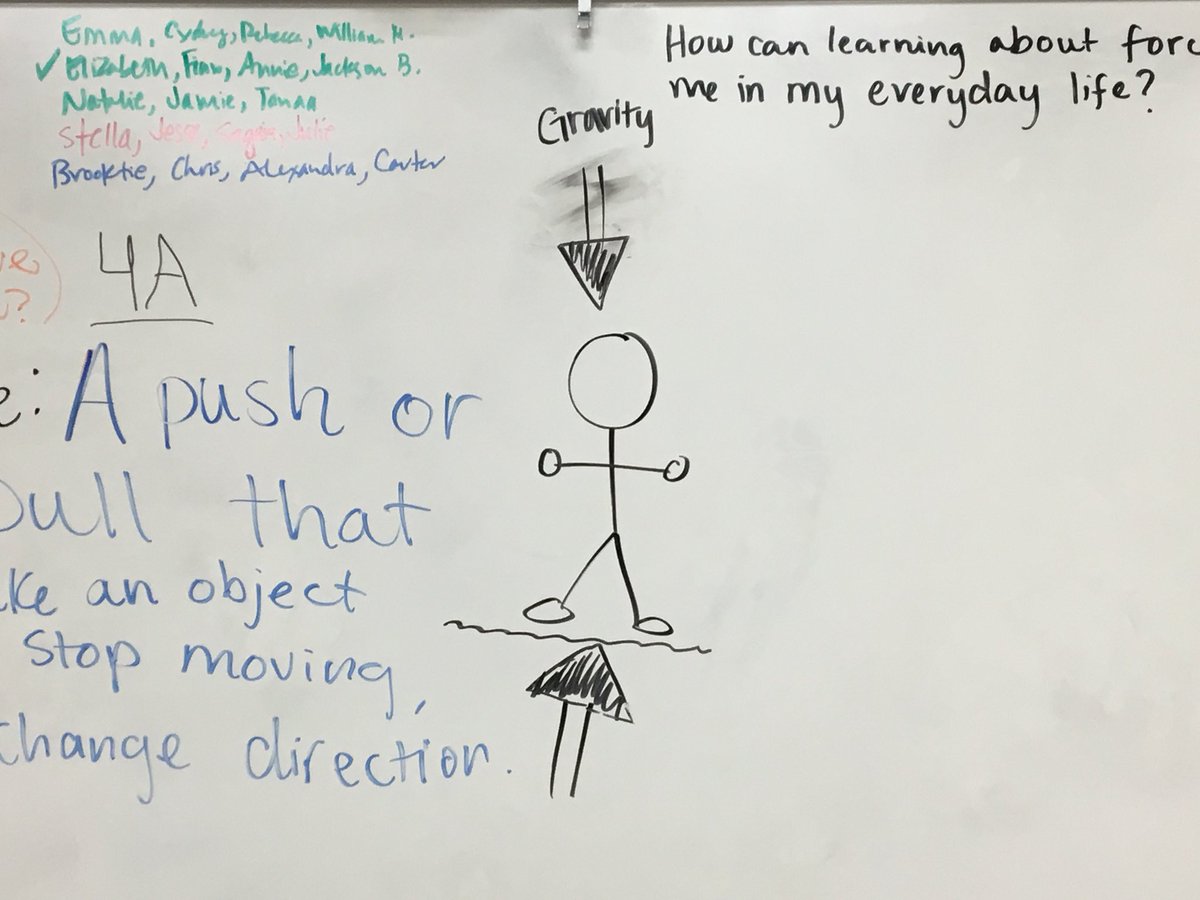 Emma, Cydney, Rebecca, William H.
✓ Elizabeth, Finn, Annie, Jackson B.
Natalie, Jamie, Tanaa
Stella, Jesse, Julie
Brooktie, Chris, Alexandra, Carter
How can learning about forc
me in my everyday life?
Gravity
4A
e: A push or
pull that
ke an object
stop moving,
change direction.